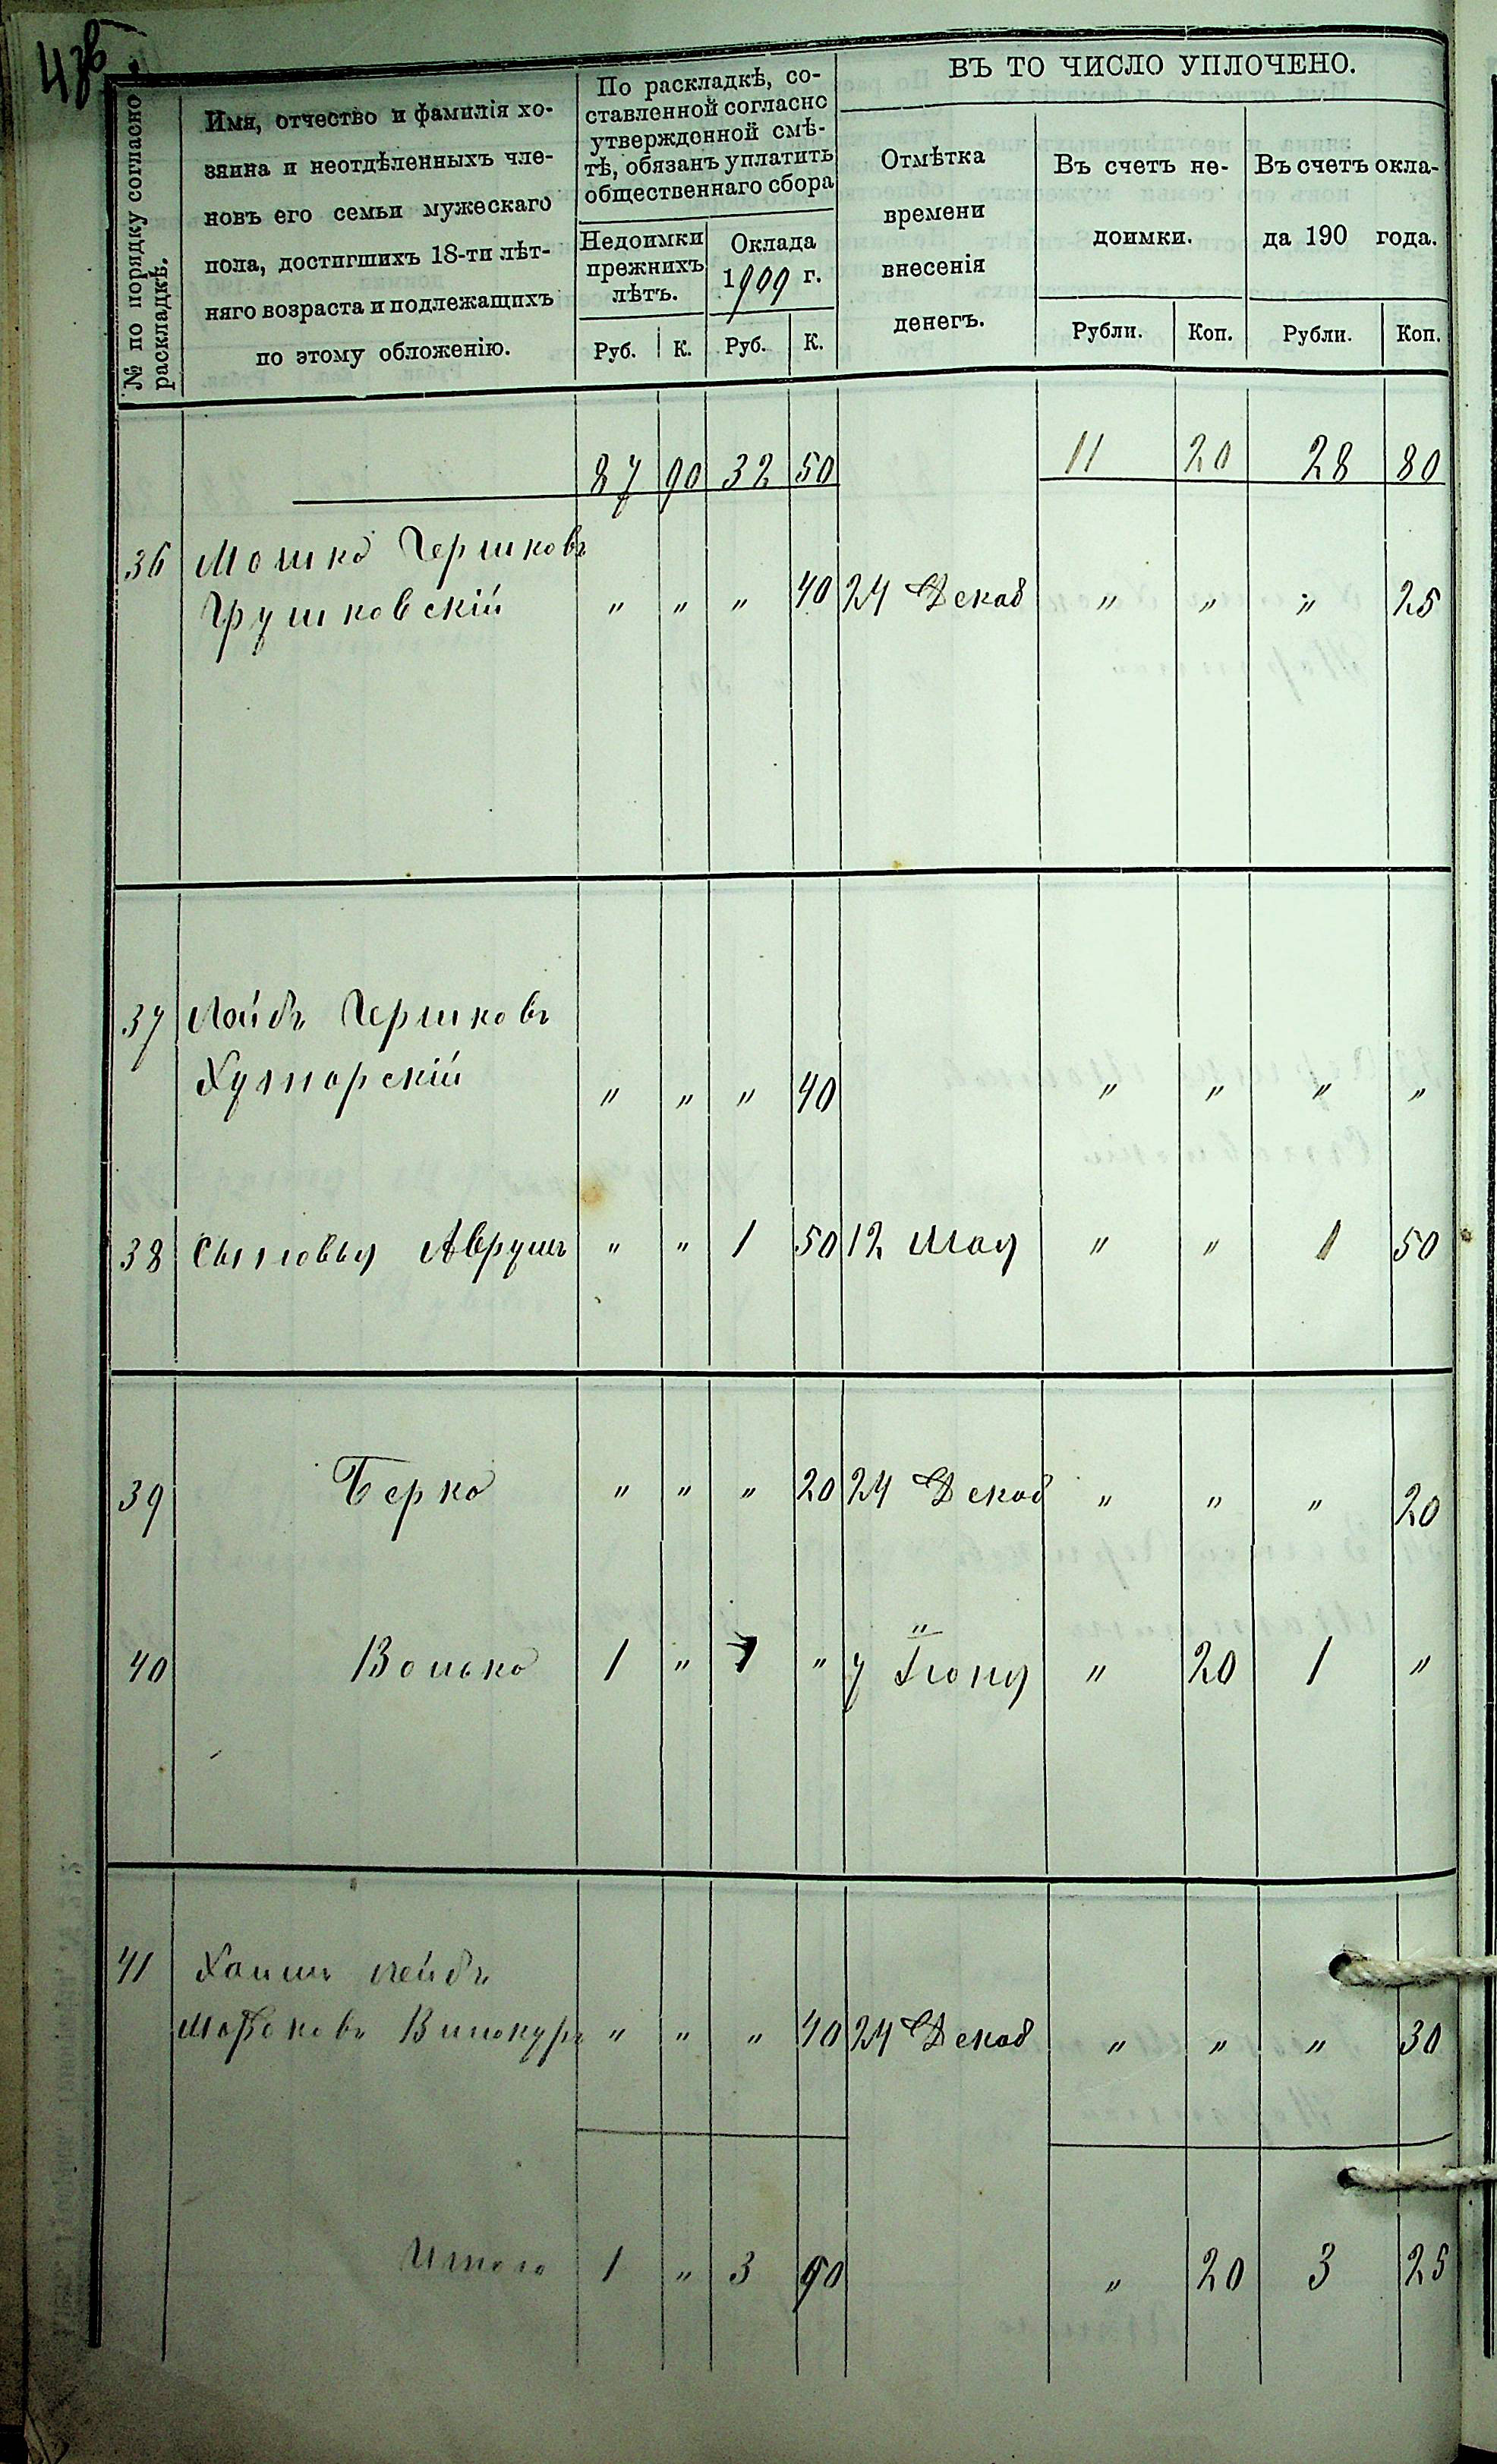 43об
№ по порядку согласно раскладкѣ.
Имя, отчество и фамилія хо-
зяина и неотдѣленныхъ чле-
новъ его семьи мужескаго
пола, достигшихъ 18-ти лѣт-
няго возраста и подлежащихъ
по этому обложенію.
По раскладкѣ, со-
ставленной согласно
утвержденной смѣ-
тѣ, обязанъ уплатить
общественнаго сбора
Недоимки
прежнихъ
лѣтъ.
Оклада
1909 г.
Руб. К. Руб. К.
ВЪ ТО ЧИСЛО УПЛОЧЕНО.
Отмѣтка
времени
внесенія
денегъ.
Въ счетъ не-
доимки.
Въ счетъ окла-
да 190 года.
Рубли. Коп. Рубли. Коп.
87 90 32 50 11 20 28 80
36 Мошко Гершковъ
Грушковскій " " " 40 24 Декаб " " " 25
37 Лейбъ Гершковъ
Хуторскій " " " 40 " " " "
38 Сыновья Аврумъ " " 1 50 12 Мая " " 1 50
39 Берко " " " 20 24 Декаб " " " 20
40 Волько 1 " 1 " 7 Іюня " 20 1 "
41 Хаимъ Лейбъ
Мошковъ Винокуръ " " " 40 24 Декаб " " " 30
Итого 1 " 3 90 " 20 3 25